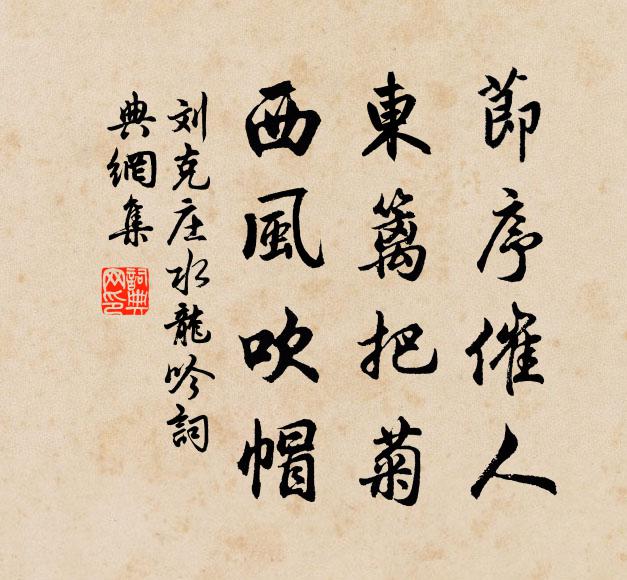 節序催人
東籬把菊
西風吹帽
刘克庄水龍吟詞
典網集
詞典
网印